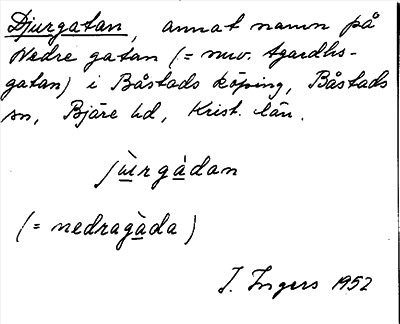 Djurgatan, annat namn på
Nedre gatan (= nuv. Agardhs-
gatan) i Båstads köping, Båstads
sn, Bjäre hd, Krist. län.
jùrgàdan
(= nedragàda)
I. Ingers 1952